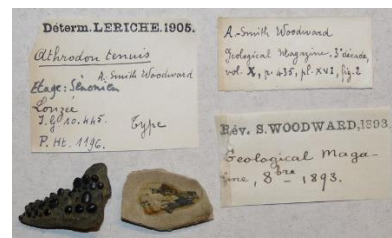 Déterm. LERICHE. 1905.
Athrodon tenuis
A. Smith Woodward
Etage: Sénonien
Lonzée
I.g 10.445. Type
P. Ht. 1196.
A. Smith Woodward
Geological Magazine. 3e décade,
vol. X, p. 435, pl. XVI, fig. 2
Rév. S. WOODWARD, 1893
Geological Maga-
zine, 8bre 1893.